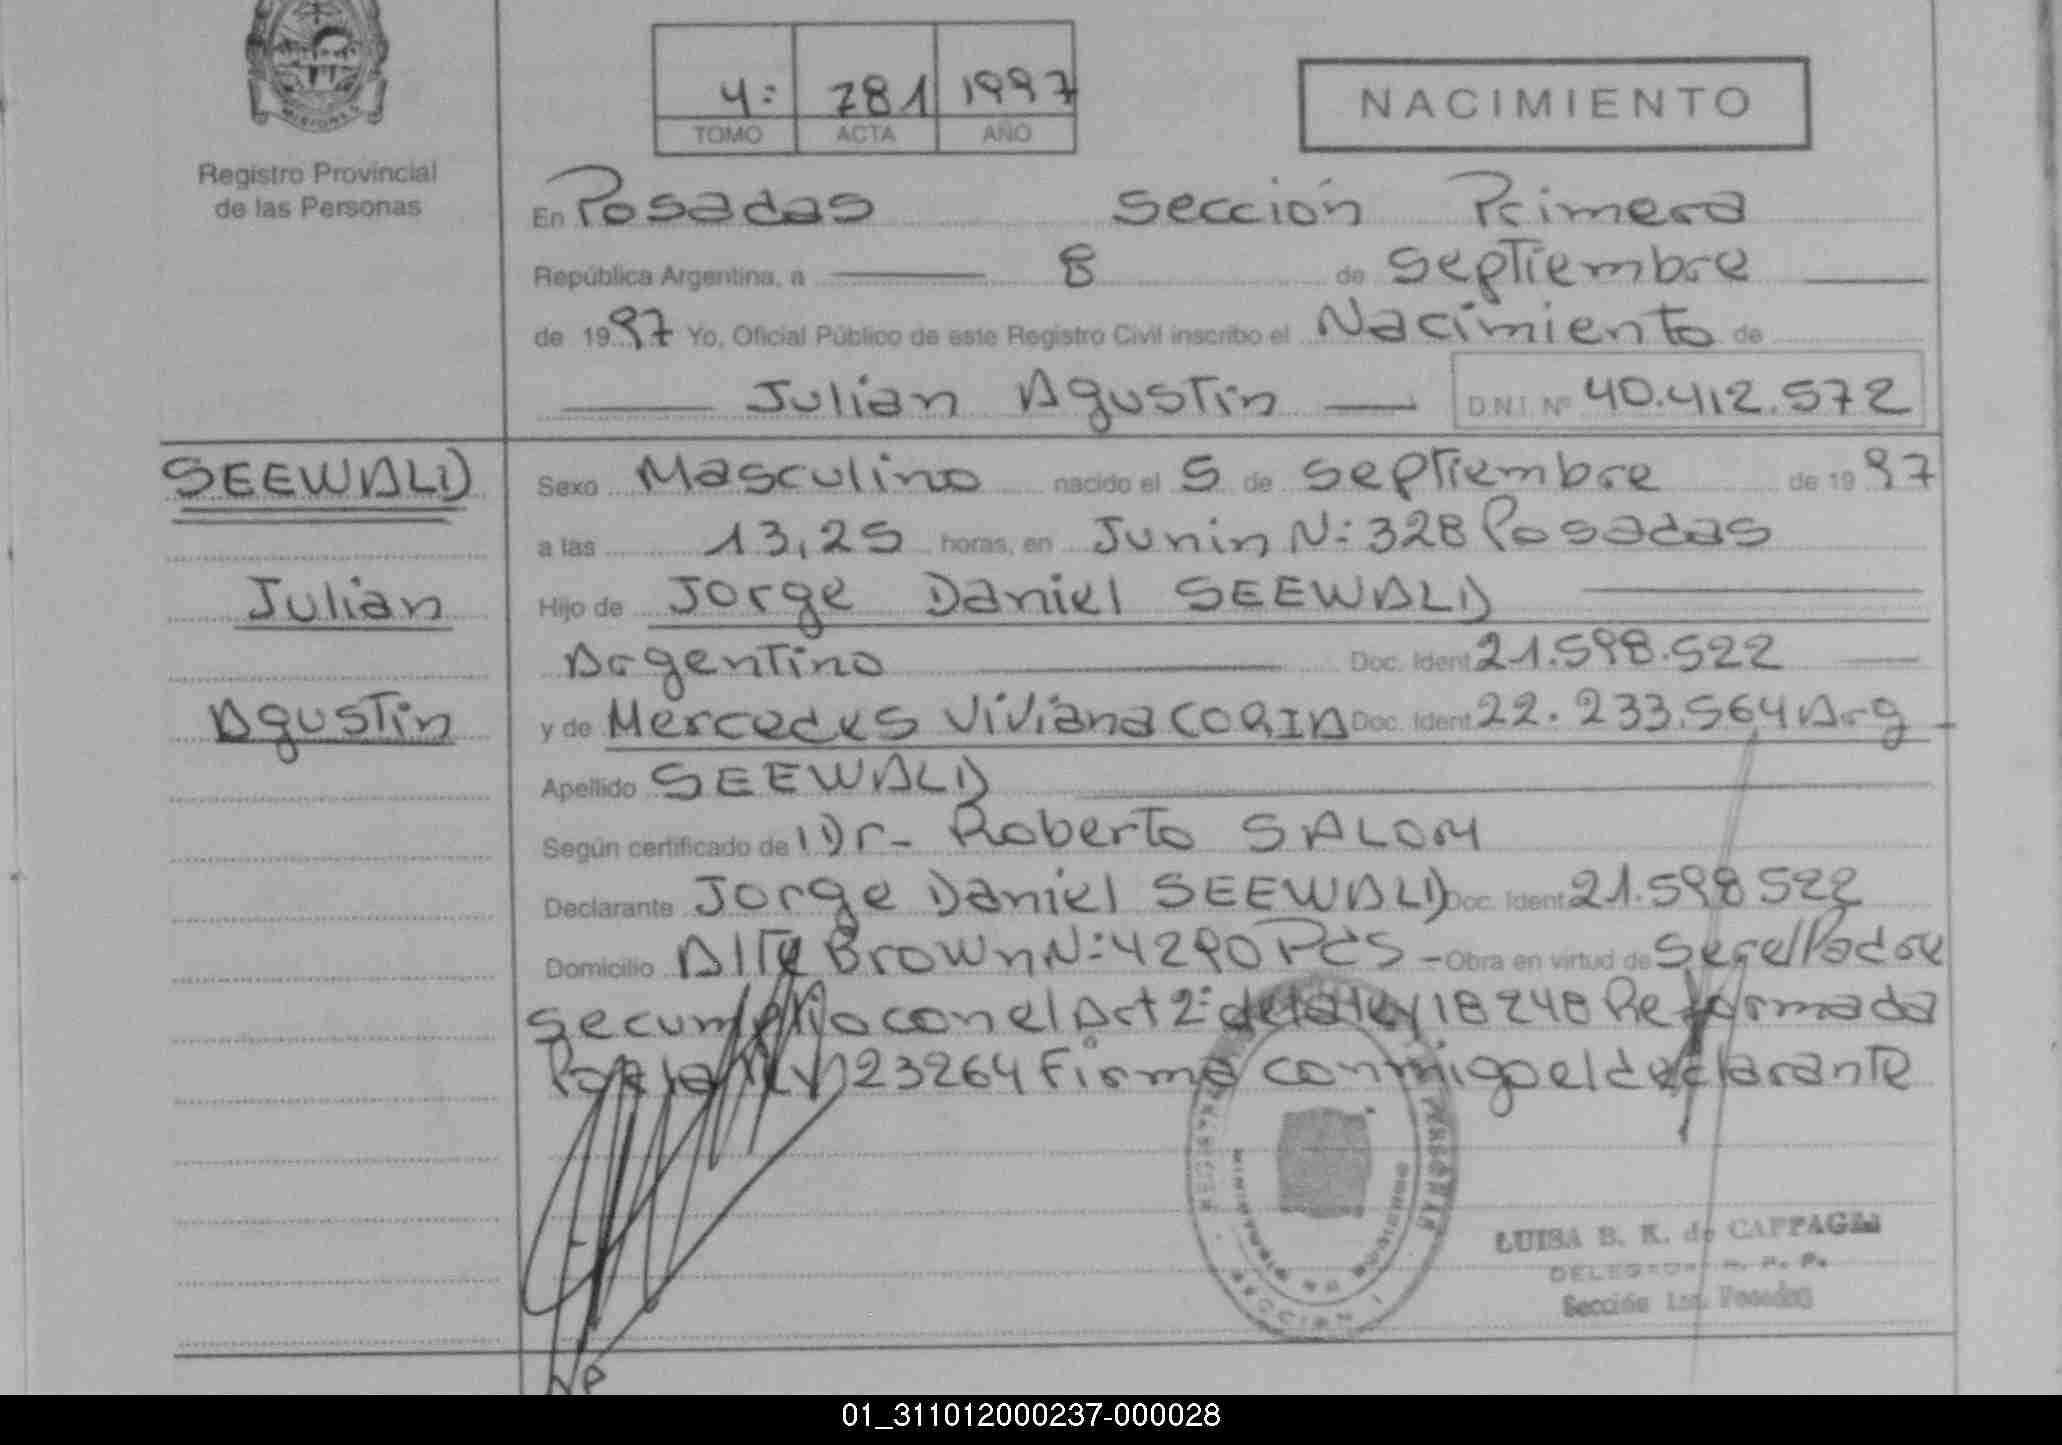 MISIONES
4: 781 1997
TOMO ACTA AÑO
NACIMIENTO
Registro Provincial
de las Personas
En Posadas Sección Primera
República Argentina, a 8 de Septiembre
de 1997 Yo, Oficial Público de este Registro Civil inscribo el Nacimiento de
Julian Agustin D.N.I. Nº 40.412.572
SEEWALD
Sexo Masculino nacido el 5 de Septiembre de 1997
a las 13,25 horas, en Junin N: 328 Posadas
Julian
Hijo de Jorge Daniel SEEWALD
Argentino Doc. Ident. 21.598.522
Agustin
y de Mercedes Viviana CORIA Doc. Ident. 22.233.564 Arg
Apellido SEEWALD
Según certificado de Dr- Roberto SALOM
Declarante Jorge Daniel SEEWALD Doc. Ident. 21.598522
Domicilio Alte Brown N: 4290 Pdas - Obra en virtud de ser el Padre
se cumplio con el Art 2: de la ley 18248 Reformada
Por la ley 23264 Firma conmigo el declarante
SECCION 1
LUISA B. K. de
Sección 1ra. Posadas
01_311012000237-000028